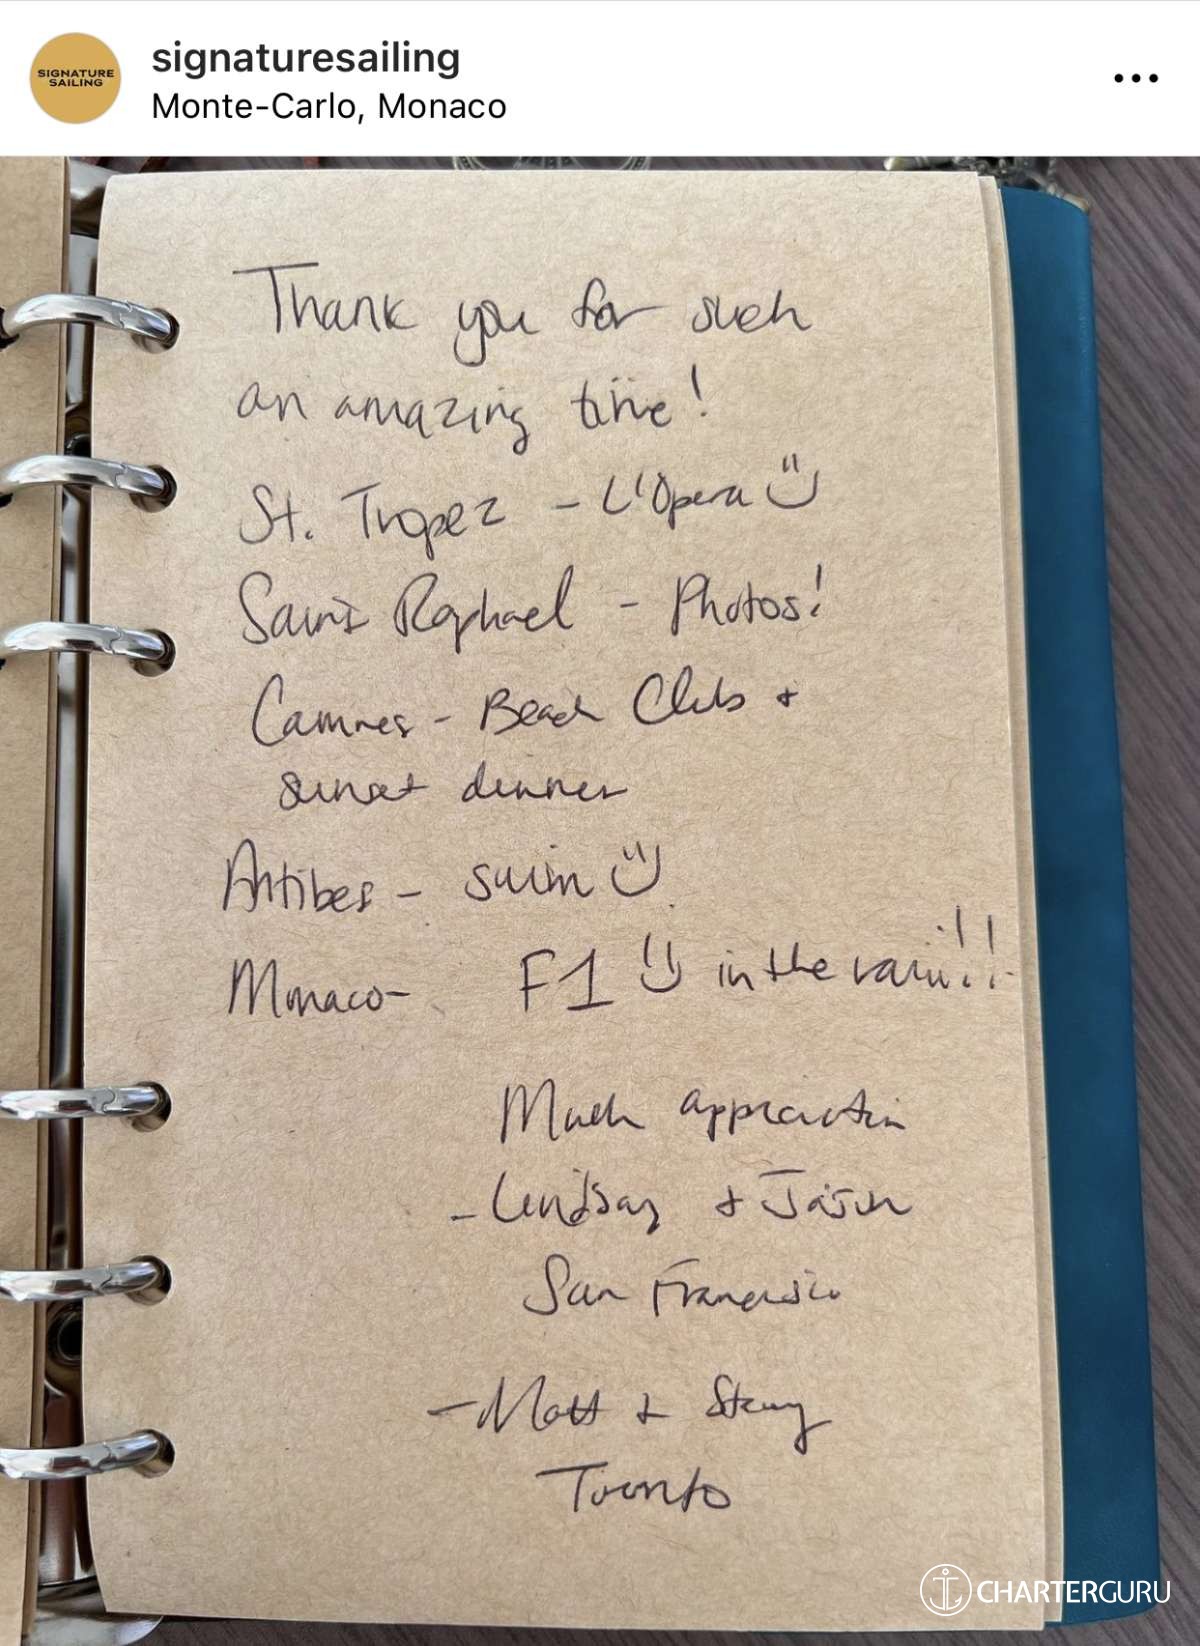 SIGNATURE
SAILING
signaturesailing
Monte-Carlo, Monaco
Thank you for such
an amazing time!
St. Tropez - L'Opera
Saint Raphael - Photos!
Cannes - Beach Club +
sunset dinner
Antibes - swim
Monaco - F1 in the rain!!!
Much appreciation
- Lindsay + Jason
San Francisco
- Matt + 
Toronto
CHARTERGURU